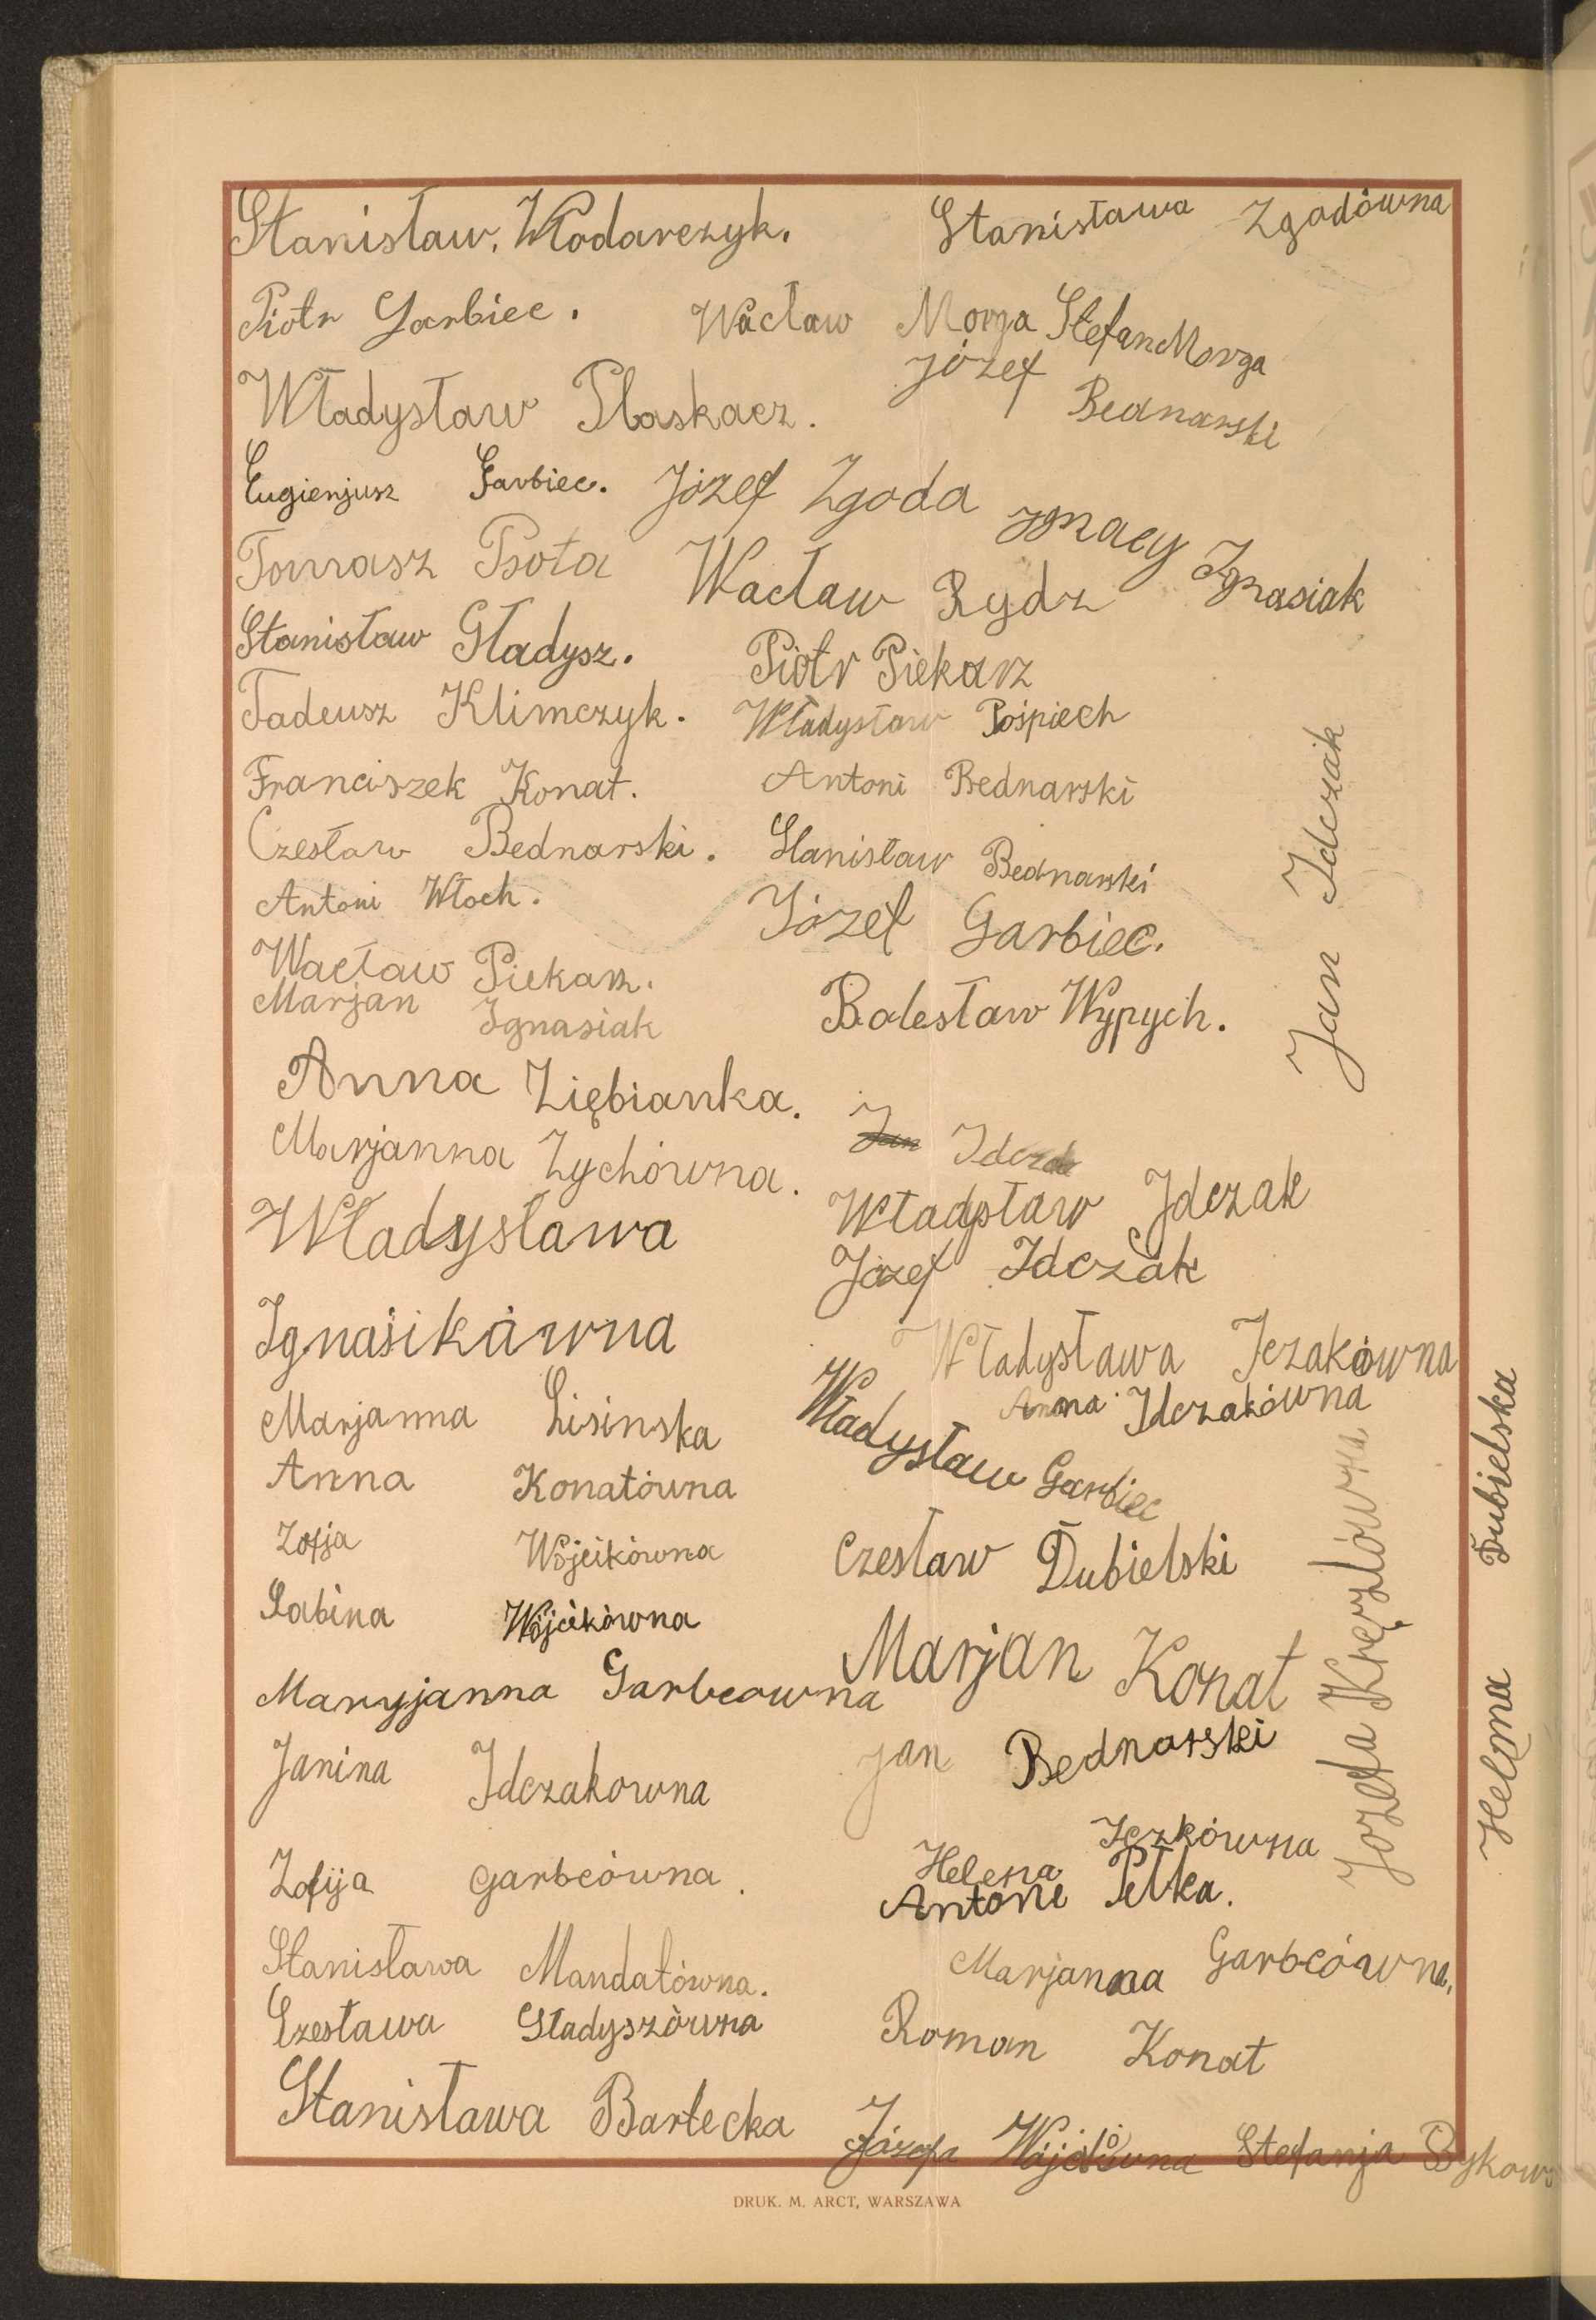 Stanisław. Włodarczyk.
Piotr Garbiec.
Władysław Płaskacz.
Eugienjusz Garbiec.
Tomasz Psota
Stanisław Gładysz.
Tadeusz Klimczyk.
Franciszek Konat.
Czesław Bednarski.
Antoni Włoch.
Wacław Piekarz.
Marjan Ignasiak
Anna Ziębianka.
Marjanna Zychówna.
Władysława
Ignasikówna
Marjanna Lisinska
Anna Konatówna
Zofja Wójcikówna
Sabina Wójcikówna
Maryjanna Garbcowna
Janina Idczakowna
Zofija Garbcówna.
Stanisława Mandatówna.
Czesława Gładyszówna
Stanisława Bartecka
Stanisława Zgodówna
Wacław Morga Stefan Morga
Józef Bednarski
Józef Zgoda
Ignacy Ignasiak
Wacław Rydz
Piotr Piekarz
Władysław Pośpiech
Antoni Bednarski
Stanisław Bednarski
Józef Garbiec.
Bolesław Wypych.
Jan Idczak
Jan
Władysław Idczak
Józef Idczak
Władysława Jezakówna
Anna Idczakówna
Władysław Garbiec
Czesław Dubielski
Marjan Konat
Jan Bednarski
Helena Jczkówna
Antoni Pełka.
Marjanna Garbcówna.
Roman Konat
Józefa Stefanja
Józefa
Helena Dubielska
DRUK. M. ARCT, WARSZAWA